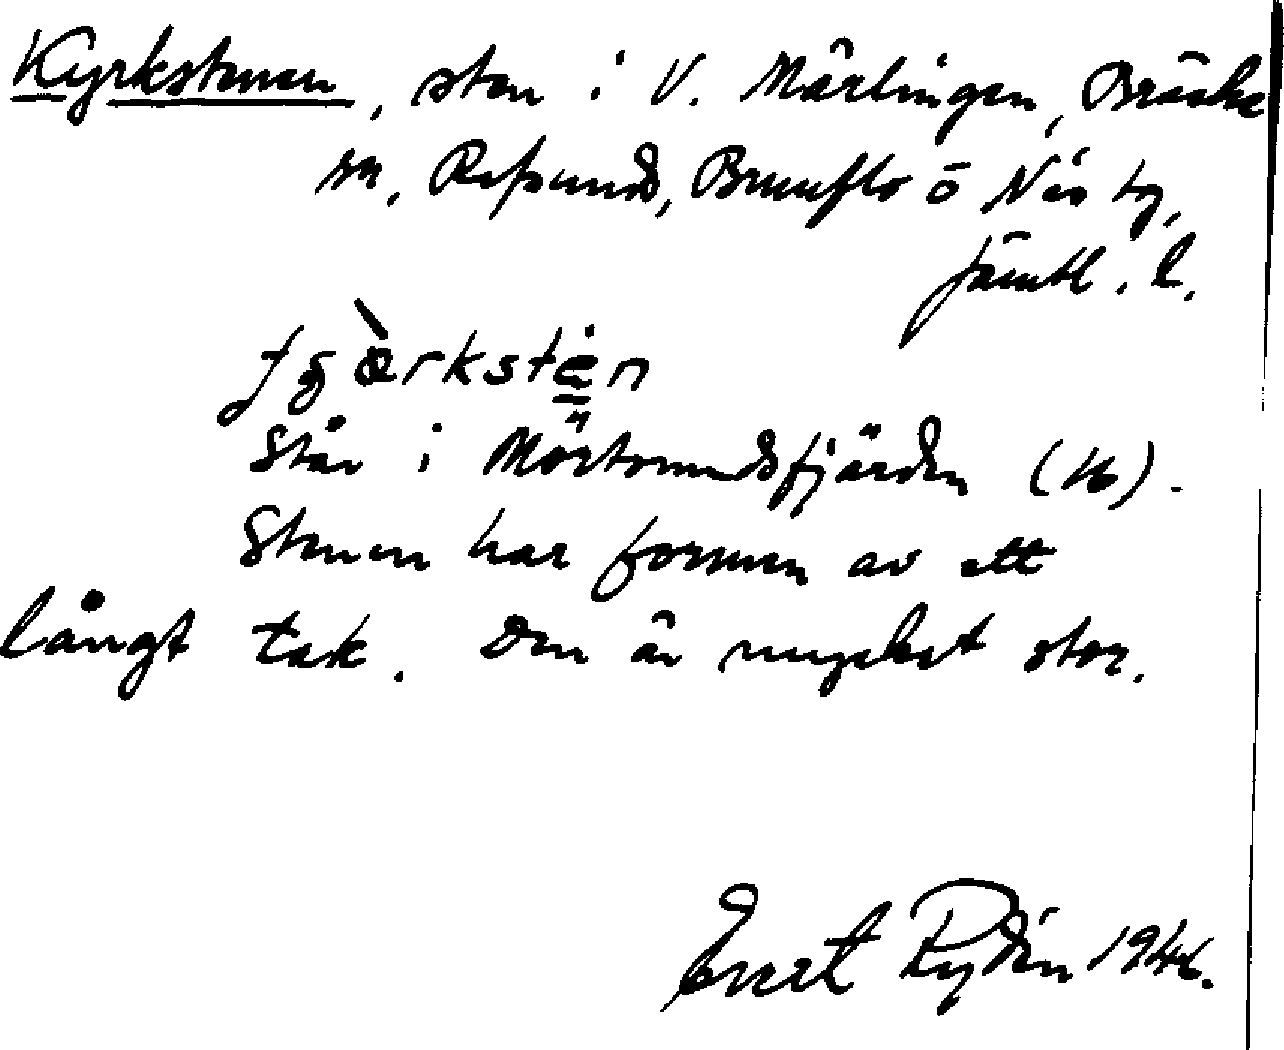 Kyrkstenen, sten i V. Mårlingen, Bräcke
sn, Refsunds, Brunflo o Näs tg,
Jämtl. l.
Står i Mörtsundsfjärden (16).
Stenen har formen av ett
långt tak. Den är mycket stor.
Evert Rydén 1946.